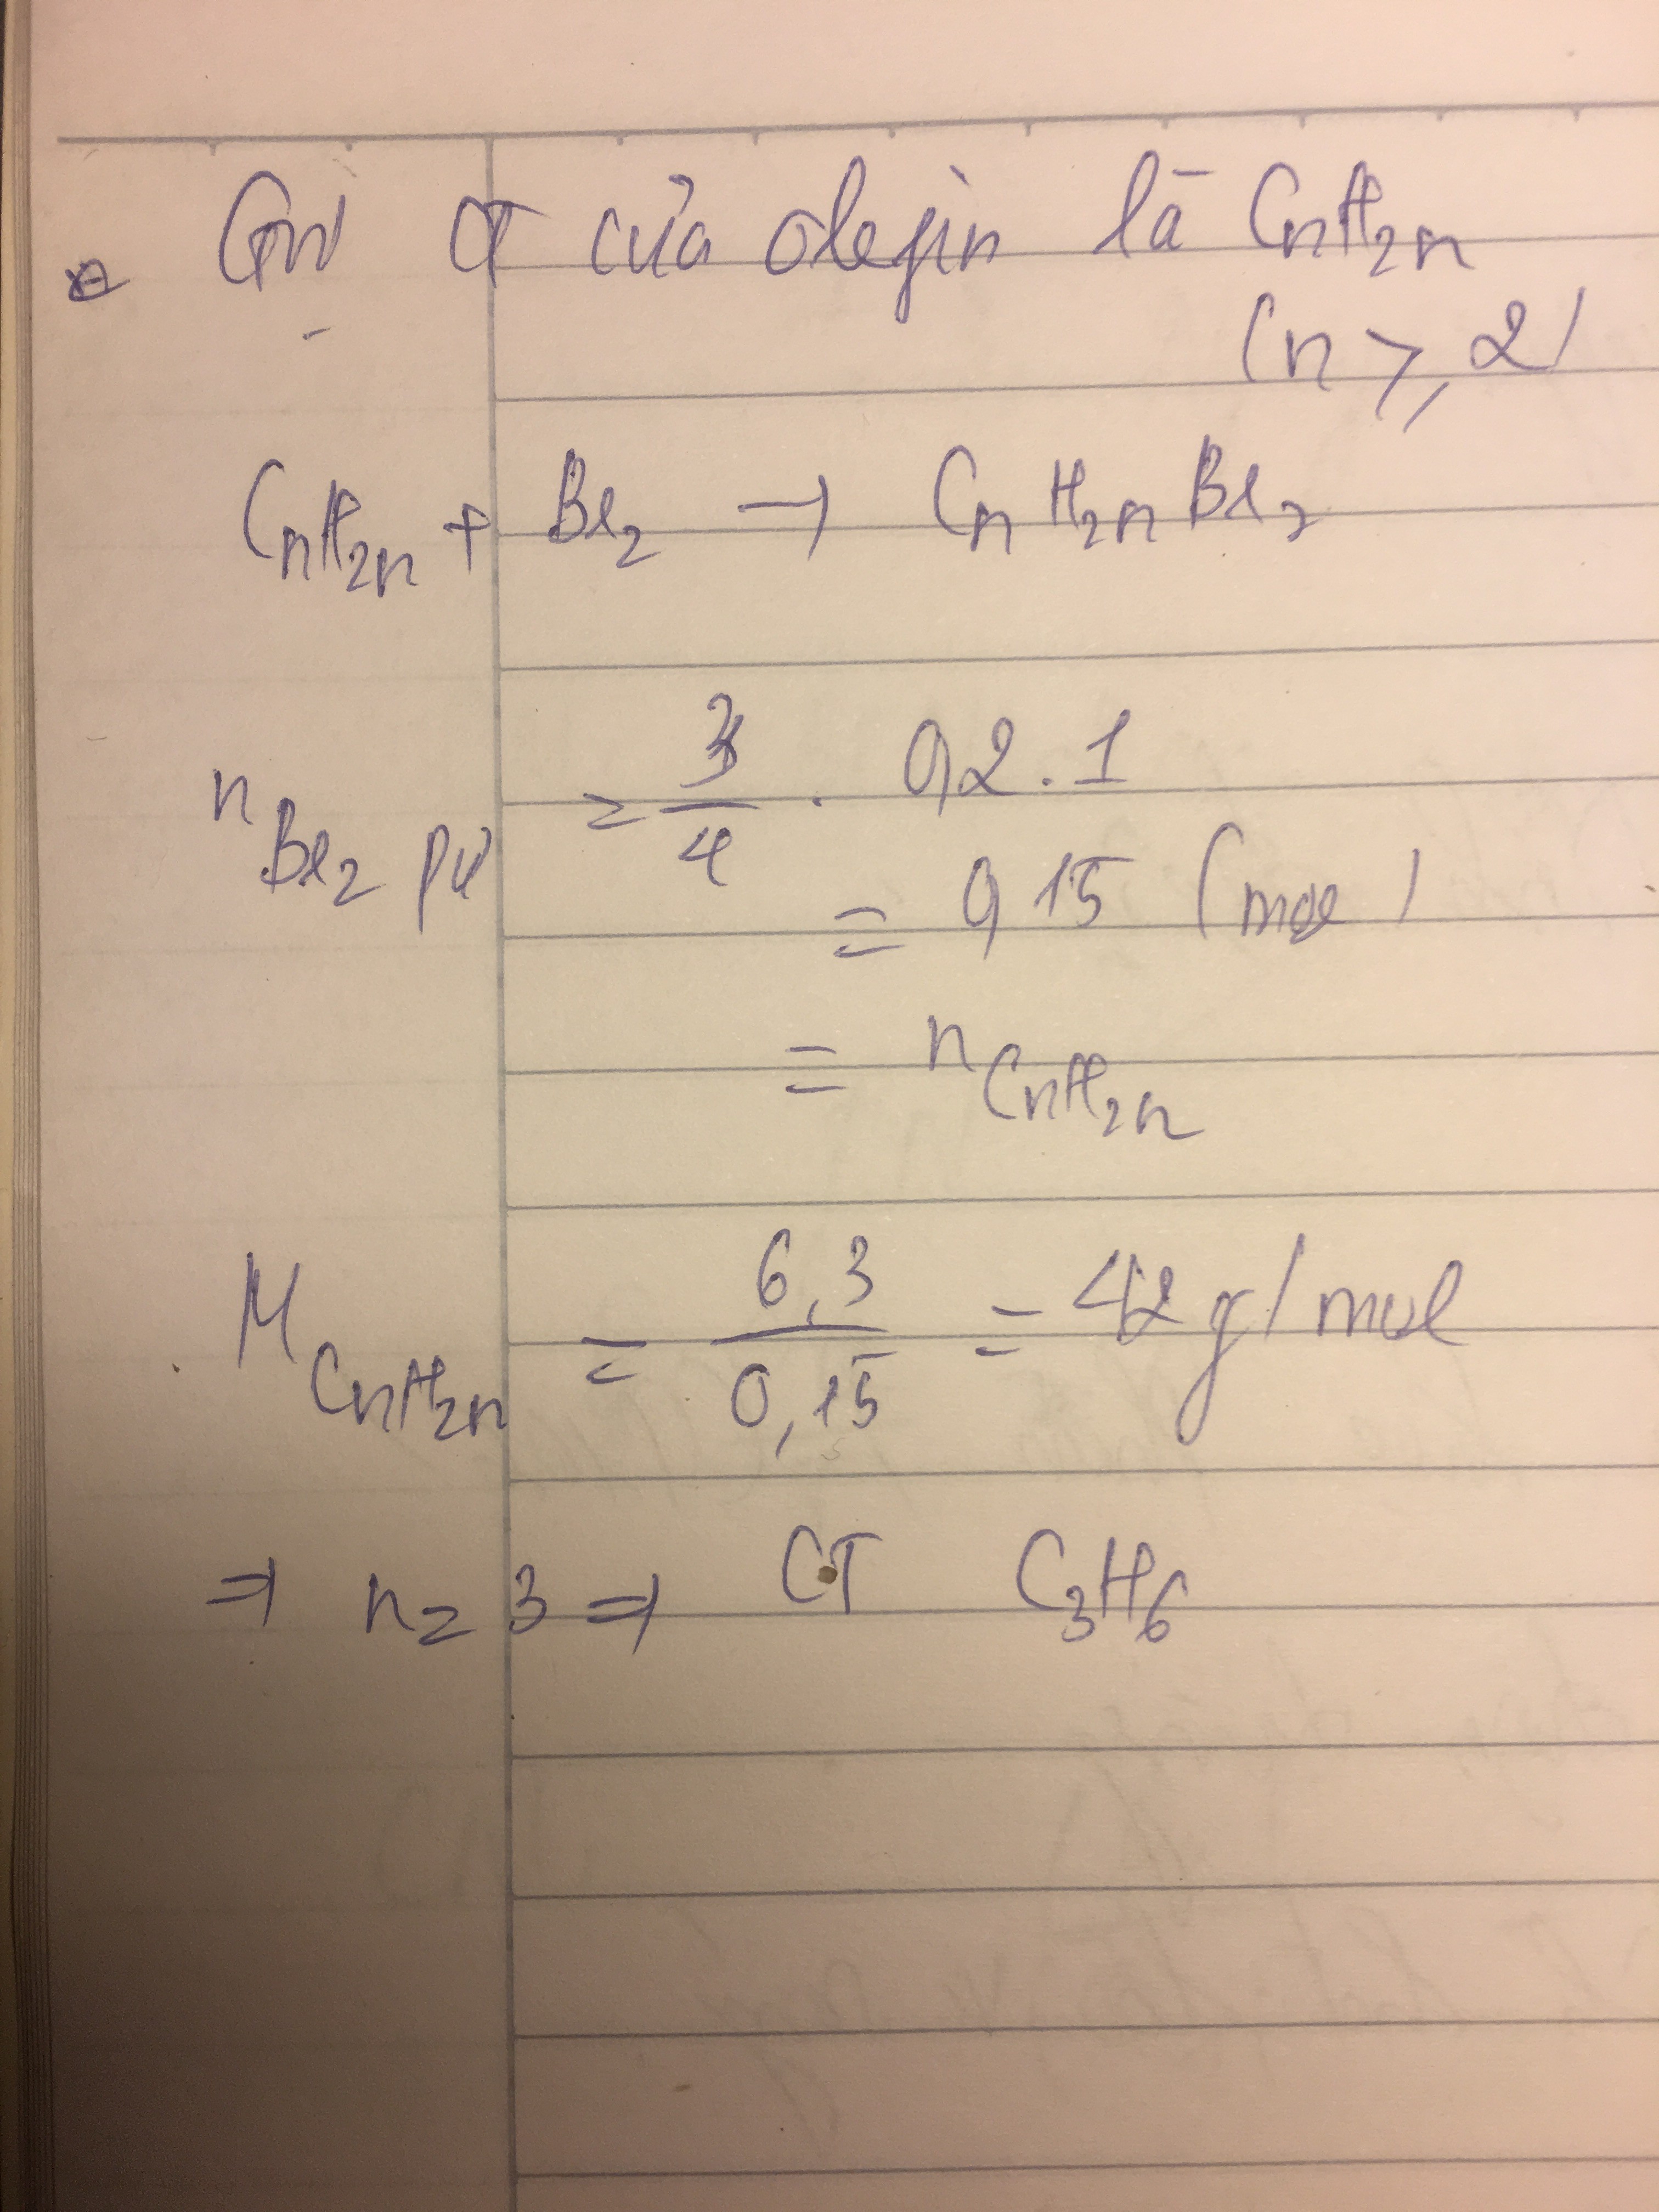 Gọi CT của olefin là CnH2n
(n ≥ 2)
CnH2n + Br2 → CnH2nBr2
nBr2 pư = 3/4 . 0,2 . 1
= 0,15 (mol)
= nCnH2n
MCnH2n = 6,3/0,15 = 42 g/mol
⇒ n = 3 ⇒ CT C3H6